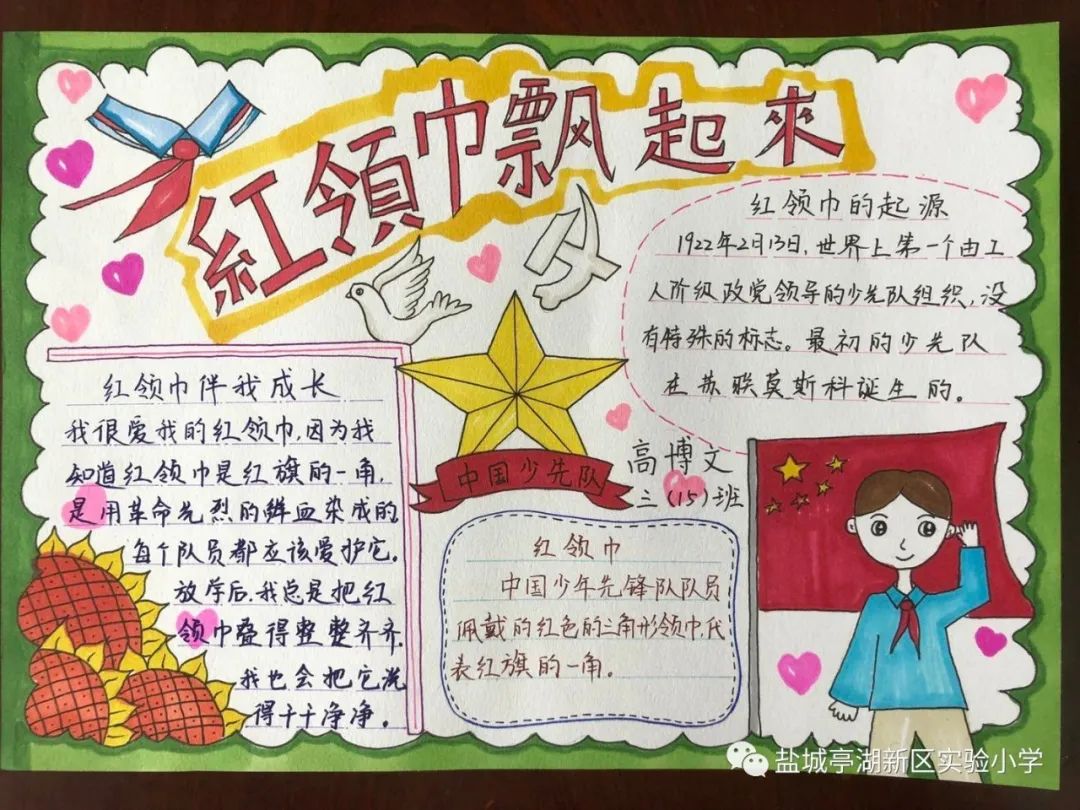 紅領巾飄起來
红领巾的起源
1922年2月13日,世界上第一个由工
人阶级政党领导的少先队组织,没
有特殊的标志。最初的少先队
在苏联莫斯科诞生的。
红领巾伴我成长
我很爱我的红领巾,因为我
知道红领巾是红旗的一角,
是用革命先烈的鲜血染成的
每个队员都应该爱护它。
放学后,我总是把红
领巾叠得整整齐齐.
我也会把它洗
得干干净净。
中国少先队
高博文
三(15)班
红领巾
中国少年先锋队队员
佩戴的红色的三角形领巾,代
表红旗的一角。
盐城亭湖新区实验小学